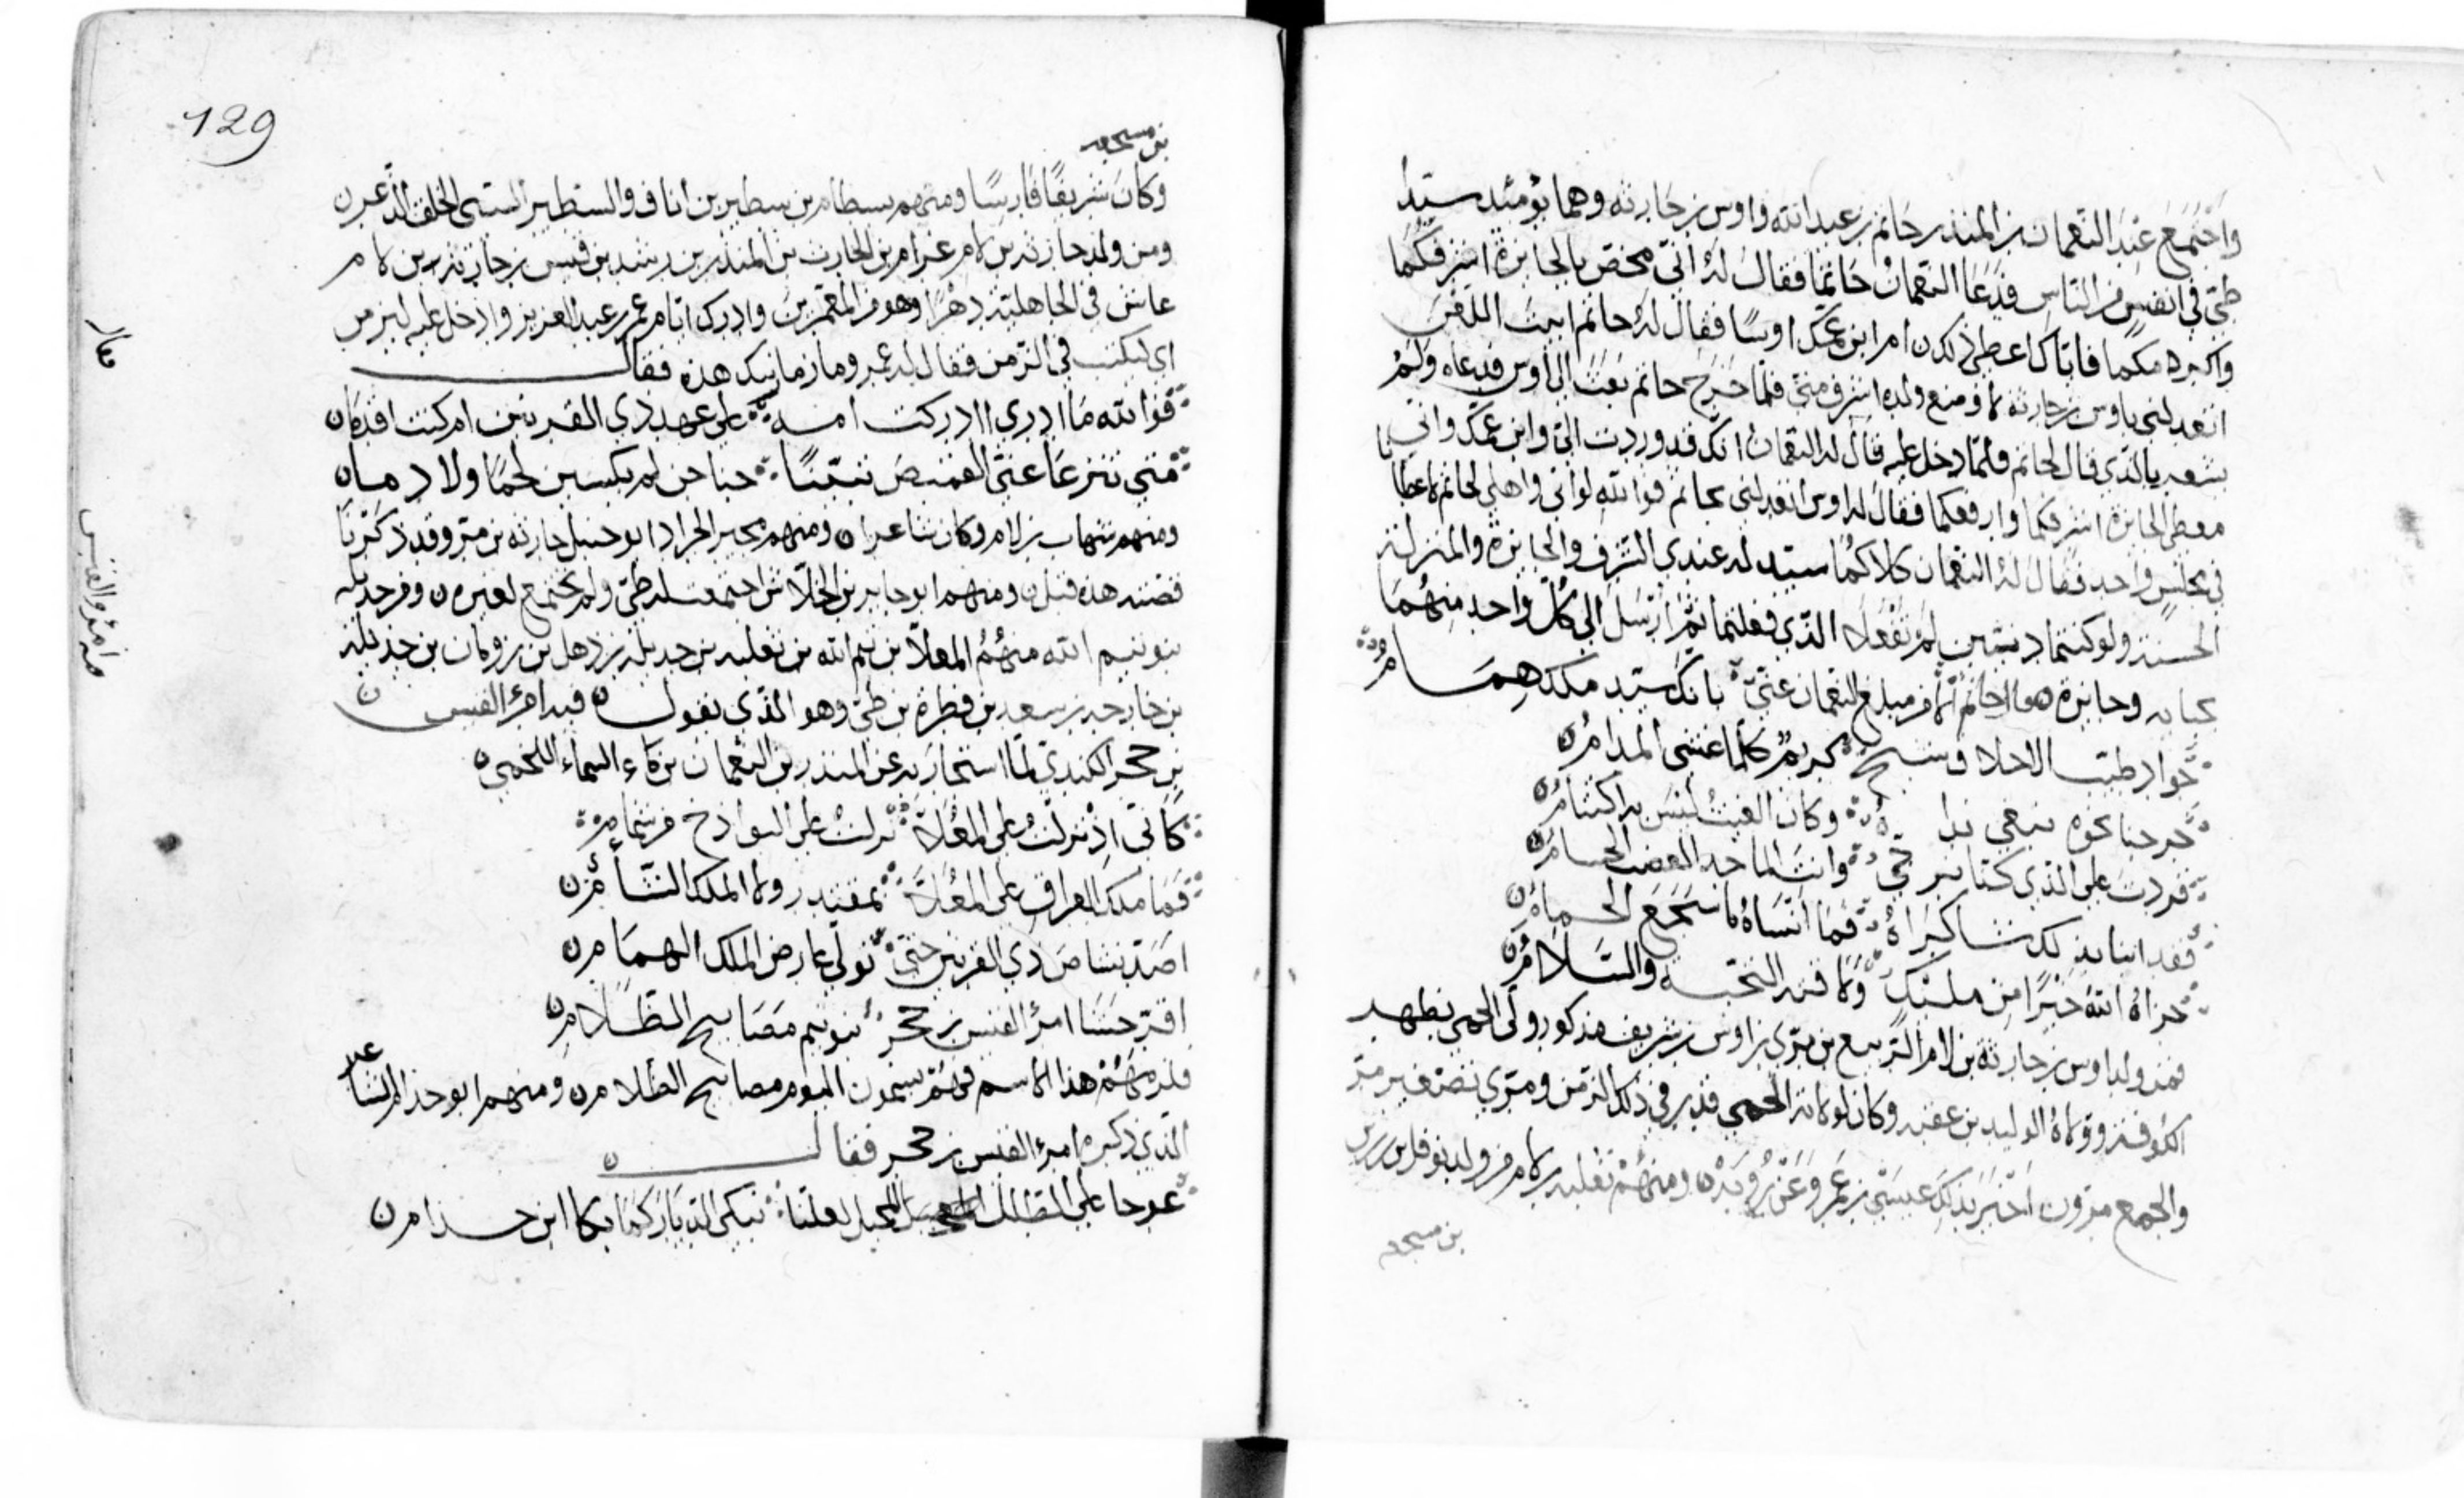 واجتمع عند النعمان بن المنذر حاتم بن عبد الله واوس بن حارثه وهما يومئذ سيدا
طيّ في انفس من الناس فدعا النعمان حاتما فقال له انّي مخصّ بالجايزة اشرفكما
واكبركما فاياك اعطي ذلك ام ابن عمك اوسًا فقال له حاتم ابيت اللعن
اتعدلني باوس بن حارثه اشرف مني فلما خرج حاتم بعث الي اوس فدعاه ولم
يشعر بالذي قال لحاتم فلما دخل عليه قال له النعمان انك قد وردت اليّ وابن عمك واني
معطي الجايزة اشرفكما وارفعكما فقال له اوس اتعدلني بحاتم فوالله لو اني واهلي لحاتم لاعطانا
في مجلس واحد فقال له النعمان كلاكما سيد له عندي الشرف والجايزة والمنزلة
الحسنة ولو كنتما دنيين لم تفعلا الذي فعلتما ثم ارسل الي كل واحد منهما
وجايزة النعمان عني بانك سيد ملك همام
جواد طيب الاخلاق سمح كريم كلما اغشى المدام
خرجنا نحوه نبغي وكان الغيث ليس به اكتتام
على الذي كنا وانت الماجد العضب الحسام
فقد انبا بذلك شاكراه فما انساه ما سجع الحمام
جزاه الله خيرًا من مليك ولاقته التحية والسلام
فمن ولد اوس بن حارثة بن لام الربيع بن مري بن اوس بن شريف مذكور ولي الحمى بظهر
الكوفة ولاه الوليد بن عقبه وكان لولاية الحمى قدر في ذلك الزمن ومري تصغير مر
والجمع مرون اخبر بذلك عيسى بن عمر وعن ومنهم ثعلبه بن لام من ولده نوفل بن
بن مسجعه
129
بن مسجعه
وكان شريفًا فارسًا ومنهم بسطام بن سطير بن اناف والسطير السيّى الخلق الذعر
ومن ولد حارثه بن لام عرام بن الحارث بن المنذر بن رشيد بن قيس بن حارثه بن لام
عاش في الجاهلية دهرًا وهو من المعمرين وادرك ايام عمر بن عبد العزيز وادخل عليه ليزمن
اي ليكتب في الزمن فقال له عمر وما زمانتك هذه فقال
فوالله ما ادري اادركت امة على عهد ذي القرنين ام كنت اقدما
متى تنزعا عني القميص تبيّنا جناجن لم يكسين لحمًا ولا دما
ومنهم شهاب بن لام وكان شاعرا ومنهم مجير الجراد ابو حنبل حارثه بن مر وقد ذكرنا
قصته هذه قبل ومنهم ابو جابر بن الجلاس اجتمعت له طي ولم تجتمع لغيره ومن جديلة
بنو تيم الله منهم المعلا بن تيم الله بن ثعلبه بن جديلة بن ذهل بن رومان بن جديلة
بن خارجه بن سعد بن فطرة بن طي وهو الذي يقول فيه امرؤ القيس
بن حجر الكندي لما استجار به عن المنذر بن النعمان بن ماء السماء اللخمي
كاني اذ نزلت على المعلا نزلت على البواذخ من شمام
فما ملك العراق على المعلا بمقتدر ولا الملك الشآم
اصد نشاص ذي القرنين حتى تولى عارض الملك الهمام
اقر حشا امرئ القيس بن حجر بنو تيم مصابيح الظلام
فلزمهم هذا الاسم فهم يسمون اليوم مصابيح الظلام ومنهم ابو حذام الشاعر
الذي ذكره امرؤ القيس بن حجر فقال
عوجا على الطلل المحيل لعلنا نبكي الديار كما بكا ابن حذام
امرؤ القيس